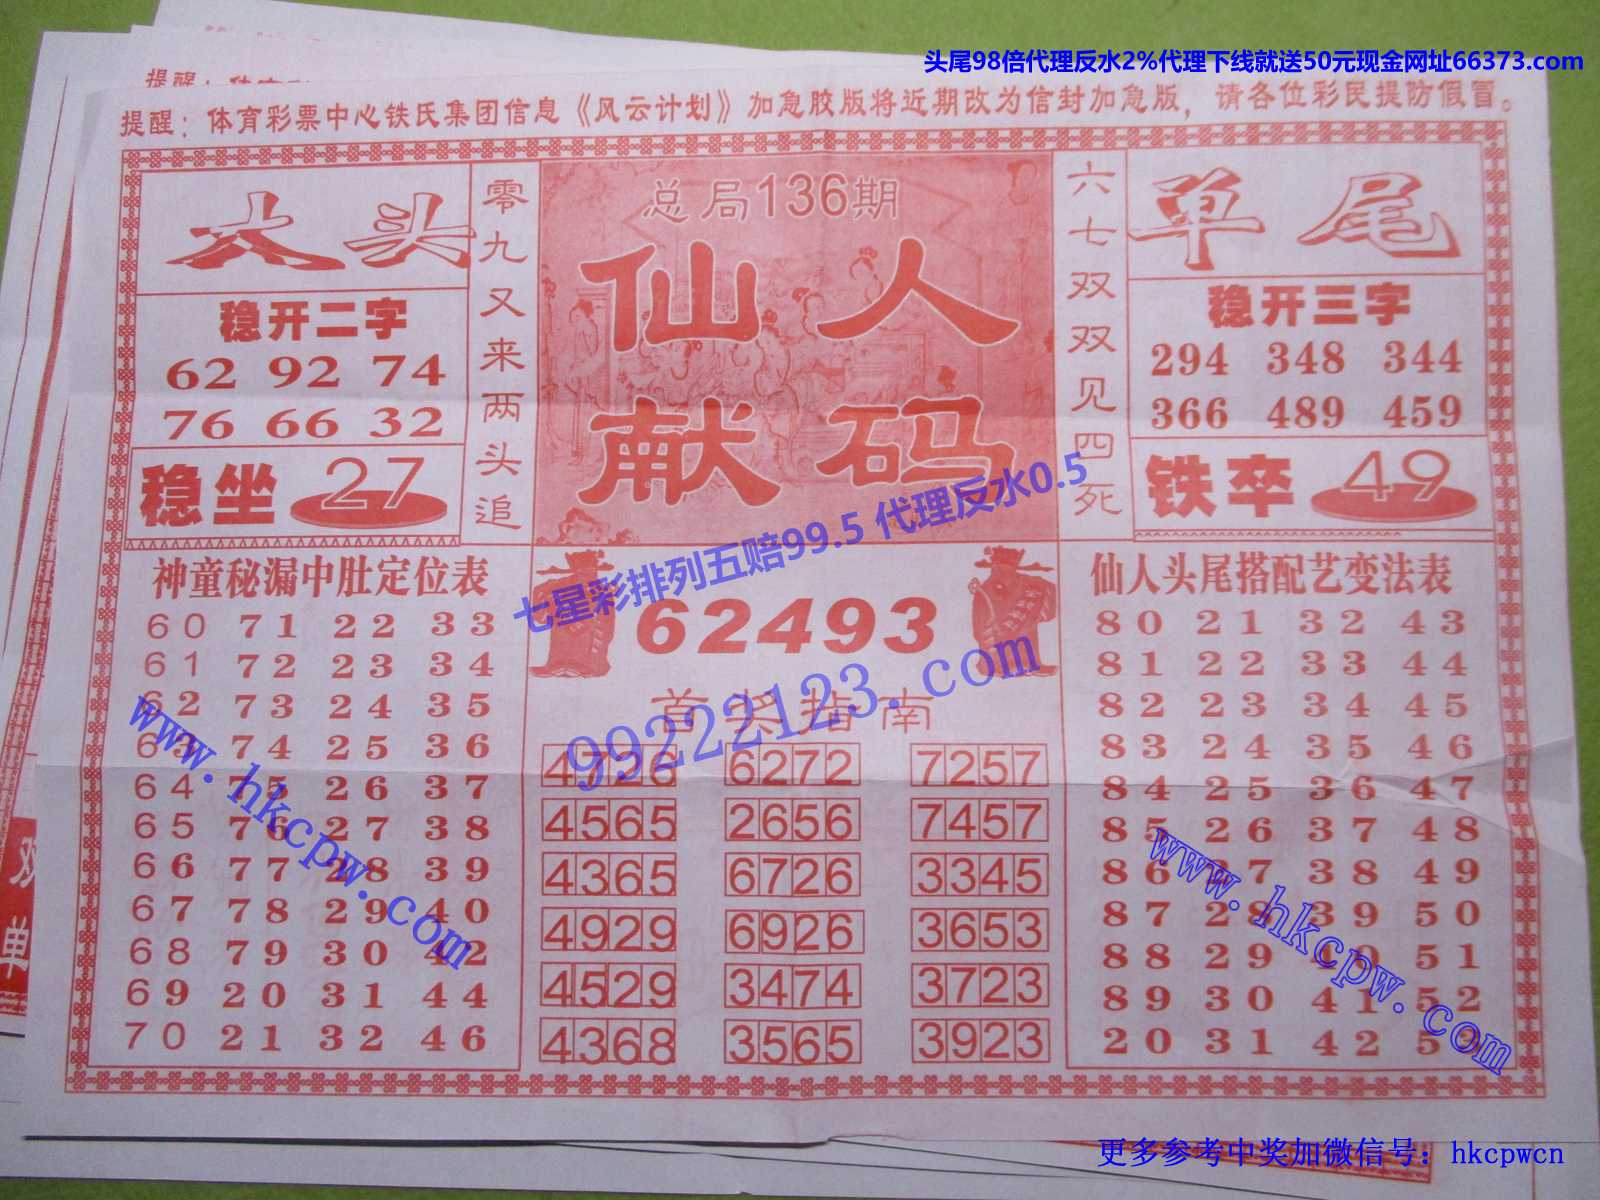 头尾98倍代理反水2%代理下线就送50元现金网址66373.com
提醒:
提醒: 体育彩票中心铁氏集团信息《风云计划》加急胶版将近期改为信封加急版, 请各位彩民提防假冒。
大头
稳开二字
62 92 74
76 66 32
稳坐 27
零九又来两头追
总局136期
仙人
献码
六七双双见四死
单尾
稳开三字
294 348 344
366 489 459
铁卒 49
七星彩排列五赔99.5 代理反水0.5
99222123.com
神童秘漏中肚定位表
60 71 22 33
61 72 23 34
62 73 24 35
63 74 25 36
64 75 26 37
65 76 27 38
66 77 28 39
67 78 29 40
68 79 30 42
69 20 31 44
70 21 32 46
www.hkcpw.com
62493
首奖指南
4726 6272 7257
4565 2656 7457
4365 6726 3345
4929 6926 3653
4529 3474 3723
4368 3565 3923
仙人头尾搭配艺变法表
80 21 32 43
81 22 33 44
82 23 34 45
83 24 35 46
84 25 36 47
85 26 37 48
86 27 38 49
87 28 39 50
88 29 40 51
89 30 41 52
20 31 42 53
www.hkcpw.com
双
单
更多参考中奖加微信号: hkcpwcn